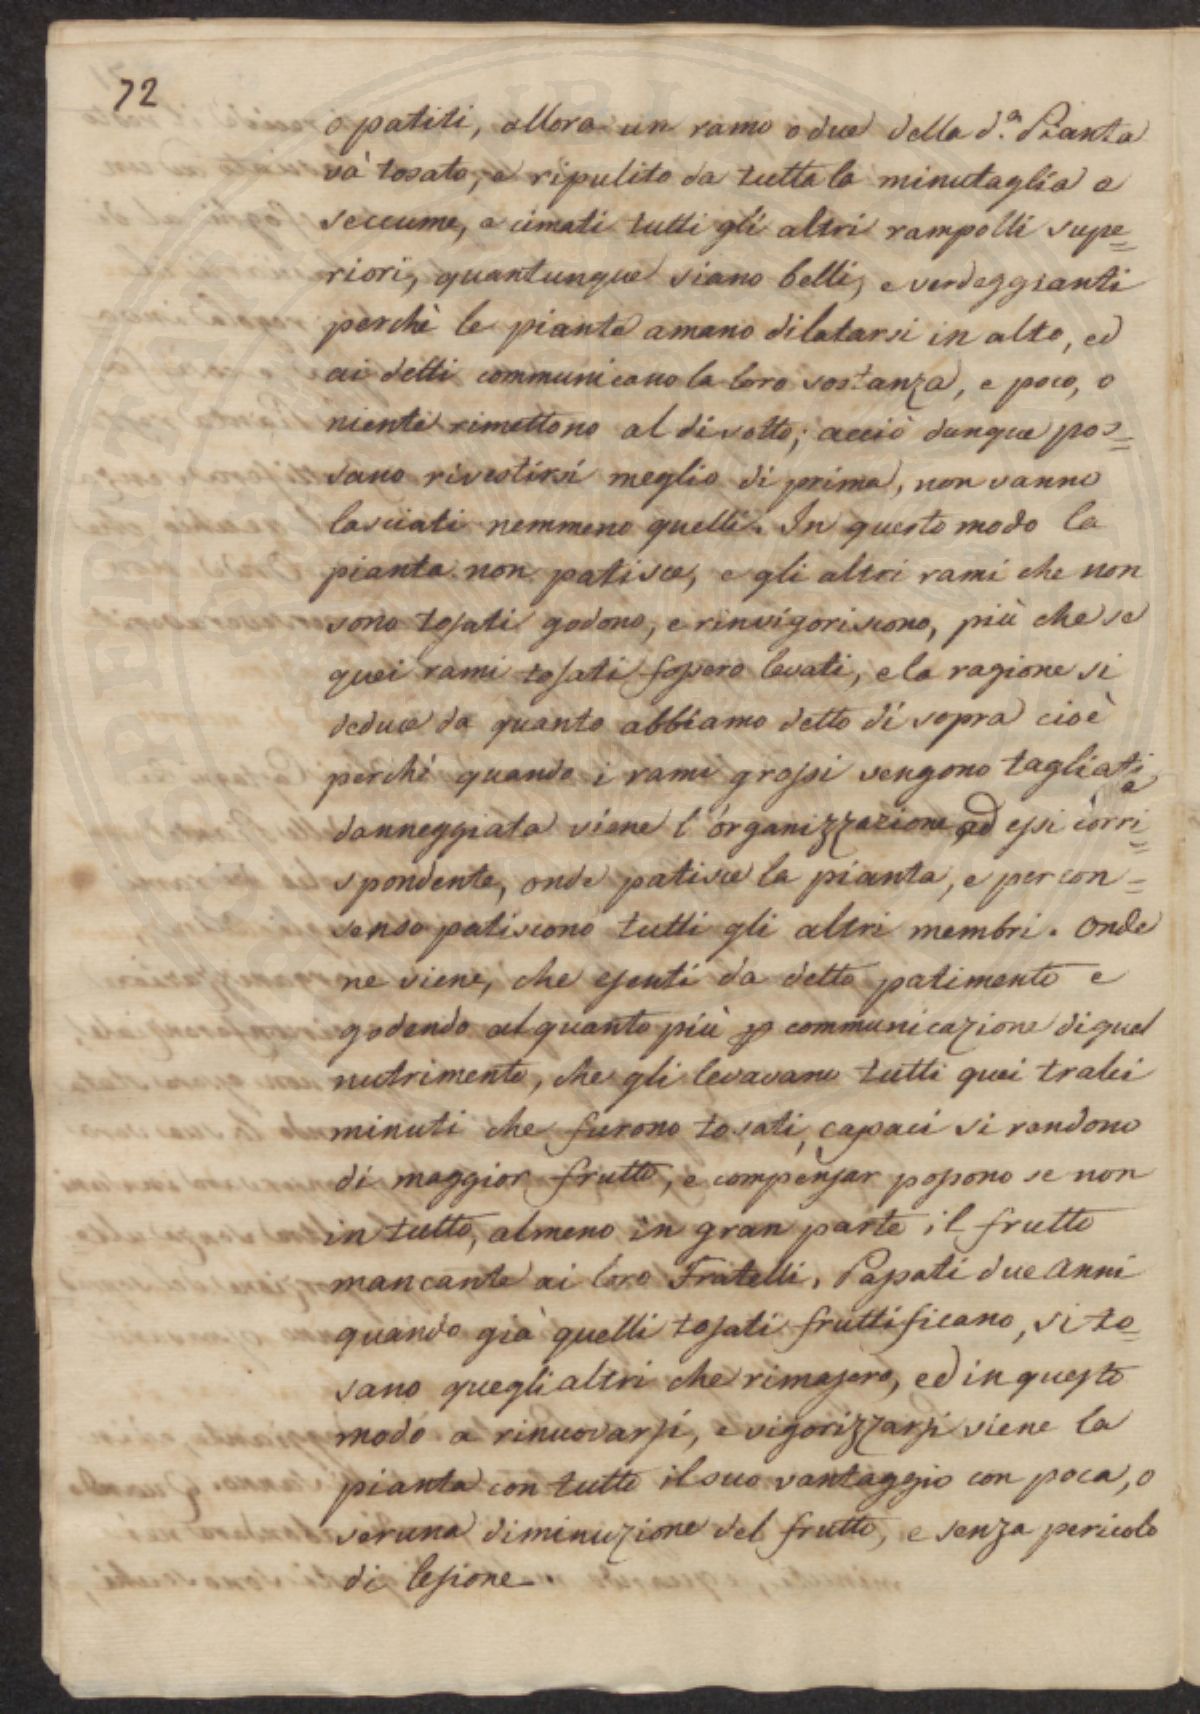 72
o patiti, allora un ramo o due della d.ª Pianta
và tosato, e ripulito da tutta la minutaglia e
seccume, e cimati tutti gli altri rampolli supe=
riori, quantunque siano belli, e verdeggianti
perchè le piante amano dilatarsi in alto, ed
ai detti communicano la loro sostanza, e poco, o
niente rimettono al di sotto; acciò dunque pos=
sano rivestirsi meglio di prima, non vanno
lasciati nemmeno quelli. In questo modo la
pianta non patisce, e gli altri rami che non
sono tosati godono, e rinvigoriscono, più che se
quei rami tosati fossero levati, e la ragione si
deduce da quanto abbiamo detto di sopra cioè
perchè quando i rami grossi vengono tagliati
danneggiata viene l'organizzazione ad essi corri=
spondente, onde patisce la pianta, e per con=
senso patiscono tutti gli altri membri. Onde
ne viene, che esenti da detto patimento e
godendo alquanto più p communicazione di quel
nutrimento, che gli levavano tutti quei tralci
minuti che furono tosati, capaci si rendono
di maggior frutto, e compensar possono se non
in tutto, almeno in gran parte il frutto
mancante ai loro Fratelli. Passati due Anni
quando già quelli tosati fruttificano, si to=
sano quegli altri che rimasero, ed in questo
modo a rinuovarsi, e vigorizzarsi viene la
pianta con tutto il suo vantaggio con poca, o
veruna diminuzione del frutto, e senza pericolo
di lesione.